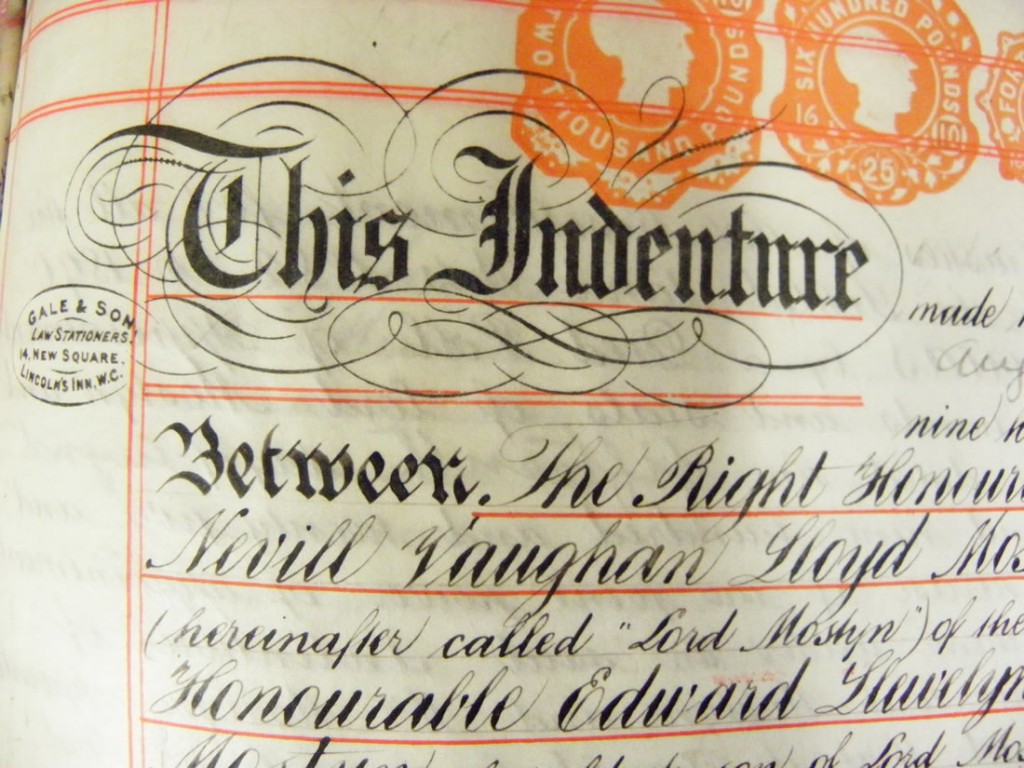 TWO THOUSAND POUNDS
SIX HUNDRED POUNDS
16
25
This Indenture
GALE & SON
LAW STATIONERS.
14, NEW SQUARE.
LINCOLN'S INN, W.C.
made
nine
Between. The Right Honour
Nevill Vaughan Lloyd Mos
(hereinafter called "Lord Mostyn") of the
Honourable Edward Llewelyn
Mostyn son of Lord Mos